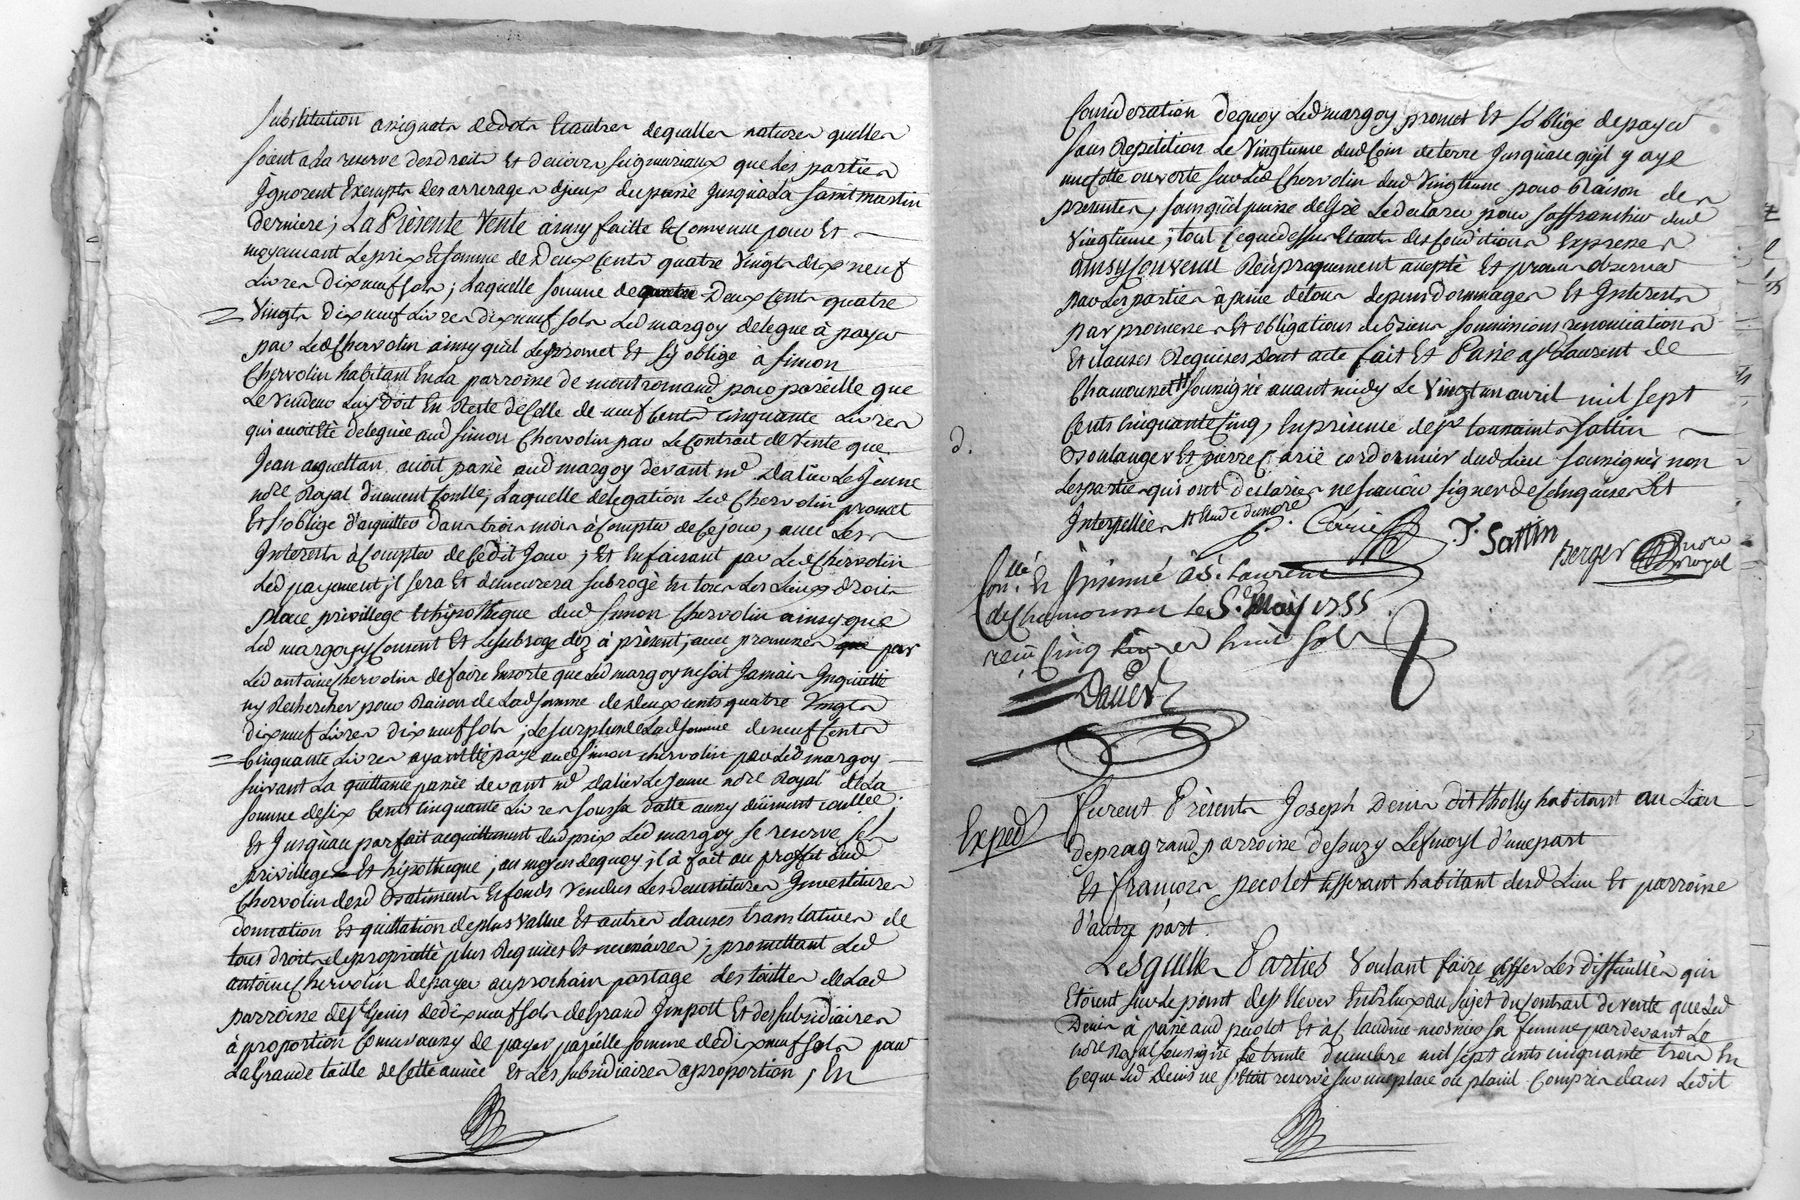 substitution assignats dedots Etautres dequelles natures quelles
soient a la reserve desdroits Et devoirs seigneuriaux que les parties
Ignorent Exempts des arrerages d'jceux du passé Jusqu'a la saint martin
derniere; La Présente Vente ainsy faitte Et Convenue pour Et
moyennant Le prix Et somme de Deux Cents quatre Vingts dix neuf
Livres dix neuf sols; Laquelle somme de quatre Deux Cents quatre
Vingts dix neuf Livres dix neuf sols Led margoy delegue à payer
par Led Chervolin ainsy qu'il Le promet Et s'y oblige à simon
Chervolin habitant En la parroisse de montromand pour pareille que
Le vendeur Luy doit En Reste de Celle de neuf Cents cinquante Livres
qui avoit Eté deleguée aud simon Chervolin par Le Contrat de Vente que
Jean aiguettan avoit passé aud margoy devant me dalier Le Jeune
nore Royal düement Conllé; Laquelle delegation Led Chervolin promet
Et s'oblige d'aquitter dans trois mois à Compter de Ce jour, avec Les
Interests à Compter de Cedit Jour; Et En faisant par Led Chervolin
Led payement jl sera Et demeurera subrogé En tous Les Lieux droits
place privillege Et hipotheque dud simon Chervolin ainsy que
Led margoy y Consent Et Le subroge dez à présent, avec promesse que par
Led antoine Chervolin de faire En sorte que Led margoy ne soit Jamais Inquietté
ny Rechercher pour Raison de Lad somme de deux cents quatre Vingts
dix neuf Livres dix neuf sols, Le surplus de Lad somme de neuf Cents
Cinquante Livres ayant Eté payé aud simon chervolin par Led margoy
suivant La quittance passée devant me dalier Le Jeune nore Royal de La
somme de six Cents cinquante Livres sous sa datte aussy düement conllée;
Et Jusqu'au parfait acquittement dud prix Led margoy se reserve ses
privillege Et hipotheque; au moyen de quoy jl à fait au proffit dud
Chervolin desd Batiments Et fonds Vendus Les devestitures Investitures
donnation Et quittation de plus value Et autres clauses translatives de
tous droits de proprietté plus Requises Et necessaires; promettant Led
antoine Chervolin de payer au prochain partage des tailles de Lad
parroisse de st Genis de dix neuf sols de Grand Impott Et des subsidiaires
à proportion Comme aussy de payer pareille somme de dix neuf sols pour
La Grande taille de Cette année Et Les subsidiaires a proportion, En
Consideration de quoy Led margoy promet Et s'oblige de payer
sans Repetition Le Vingtieme dud Coin de terre Jusqu'a ce qu'jl y aye
une Cotte ouverte sur Led Chervolin dud Vingtieme pour Raison des
presentes, sans qu'il puisse de Gré Le declarer pour s'affranchir dud
Vingtieme; tout Ce que dessus Etants des Conditions Expresses
ainsy Convenü Reciproquement accepté Et promis observer
par Les parties à peine de tous depens dommages Et Interests
par promesses Et obligations de biens soumissions renonciations
Et clauses Requises dont acte fait Et Passé a st Laurent de
Chamousset soussigné avant midy Le Vingt un avril mil sept
Cents Cinquante Cinq, En présence de sr toussaints sattin
Boulanger Et pierre Carié cordonnier dud Lieu soussignés non
Les parties qui ont déclarées ne scavoir signer de Ce Enquises Et
Interpellées Et Etude du nore
P. Carié T. Sattin Berger nore Royal
d.
Conllé Et Jnsinué à st. Laurent
de Chamousset Le 5e May 1755.
reçu Cinq Livres huit sols
Daver
Exped
furent Présents Joseph Denis dit tholly habitant au Lieu
de pragrand parroisse de souzy L'efmoyl d'une part
Et francois pecolet tisserant habitant desd Lieu Et parroisse
d'autre part.
Lesquelles Parties Voulant faire Cesser Les difficultés qui
Etoient sur Le point de s'Elever Entr'Eux au sujet du Contrat de vente que Led
Denis à passé aud pecolet Et à Claudine mosnier sa femme par devant Le
nore Royal soussigné Le trente decembre mil sept cents cinquante trois En
Ce que Led Denis ne s'Etoit reservé sur une place ou plaint Compris dans Ledit